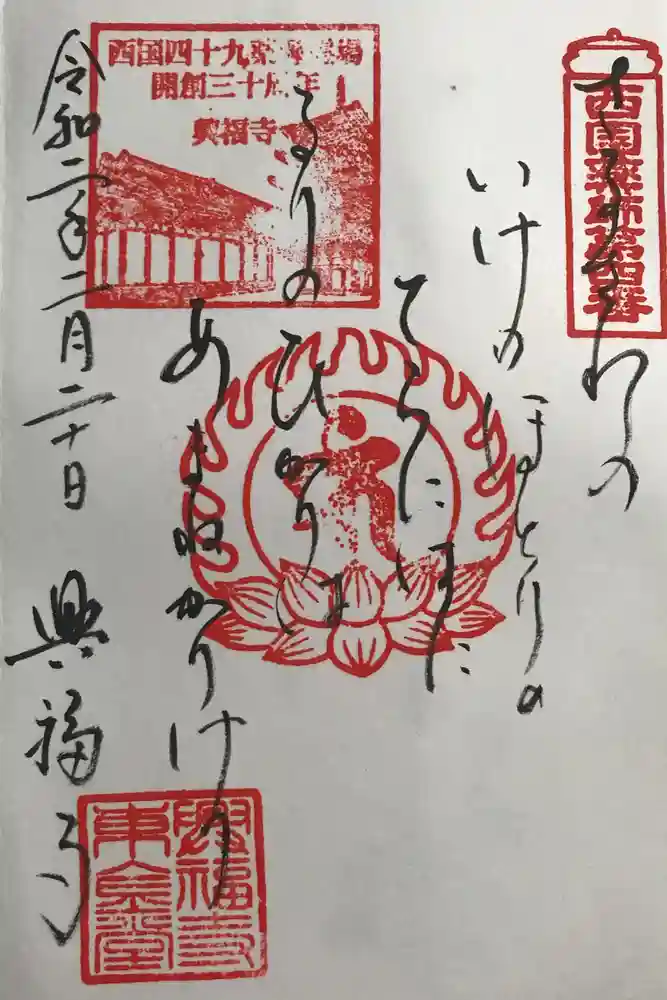 西国薬師第四番
さるさわの
いけのほとりの
てらにはに
るりのひかりは
あまねかりけり
西国四十九薬師霊場
開創三十周年
興福寺
令和二年二月二十日 興福寺
興福寺
東金堂